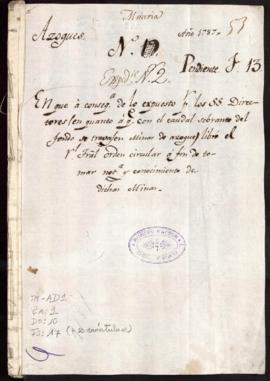 Mineria
53
Azogues.
Año 1787
N.º 1
Pendiente F. 13
Exp.te N.º 2.
EN que à conseq.a de lo expuesto p.r los SS. Direc-
tores (en quanto à q.e con el caudal sobrante del
fondo se trabajen Minas de azogue) libro el
R.l Trāl orden circular à fin de to-
mar not.a y conocimiento de
dichas Minas.
M-AD1
CA: 1
DO: 10
FS: 17 (+ 2 carátulas)